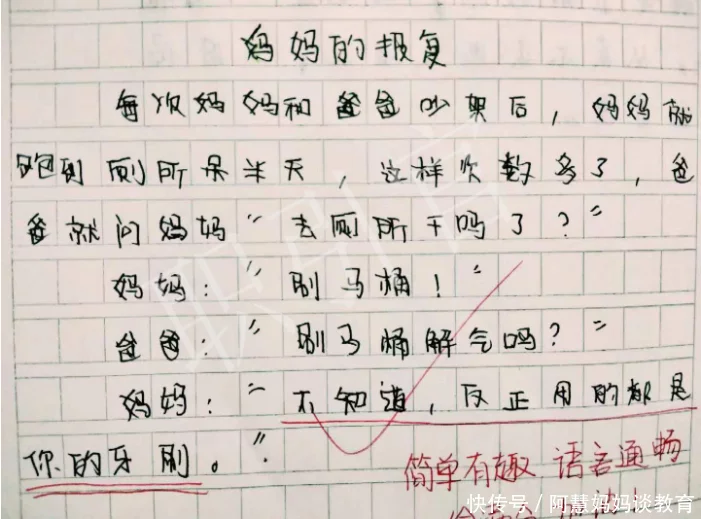 妈妈的报复
每次妈妈和爸爸吵架后，妈妈就
跑到厕所呆半天，这样次数多了，爸
爸就问妈妈“去厕所干吗了？”
妈妈：“刷马桶！”
爸爸：“刷马桶解气吗？”
妈妈：“不知道，反正用的都是
你的牙刷。”
简单有趣 语言通畅
职引官
快传号／阿慧妈妈谈教育